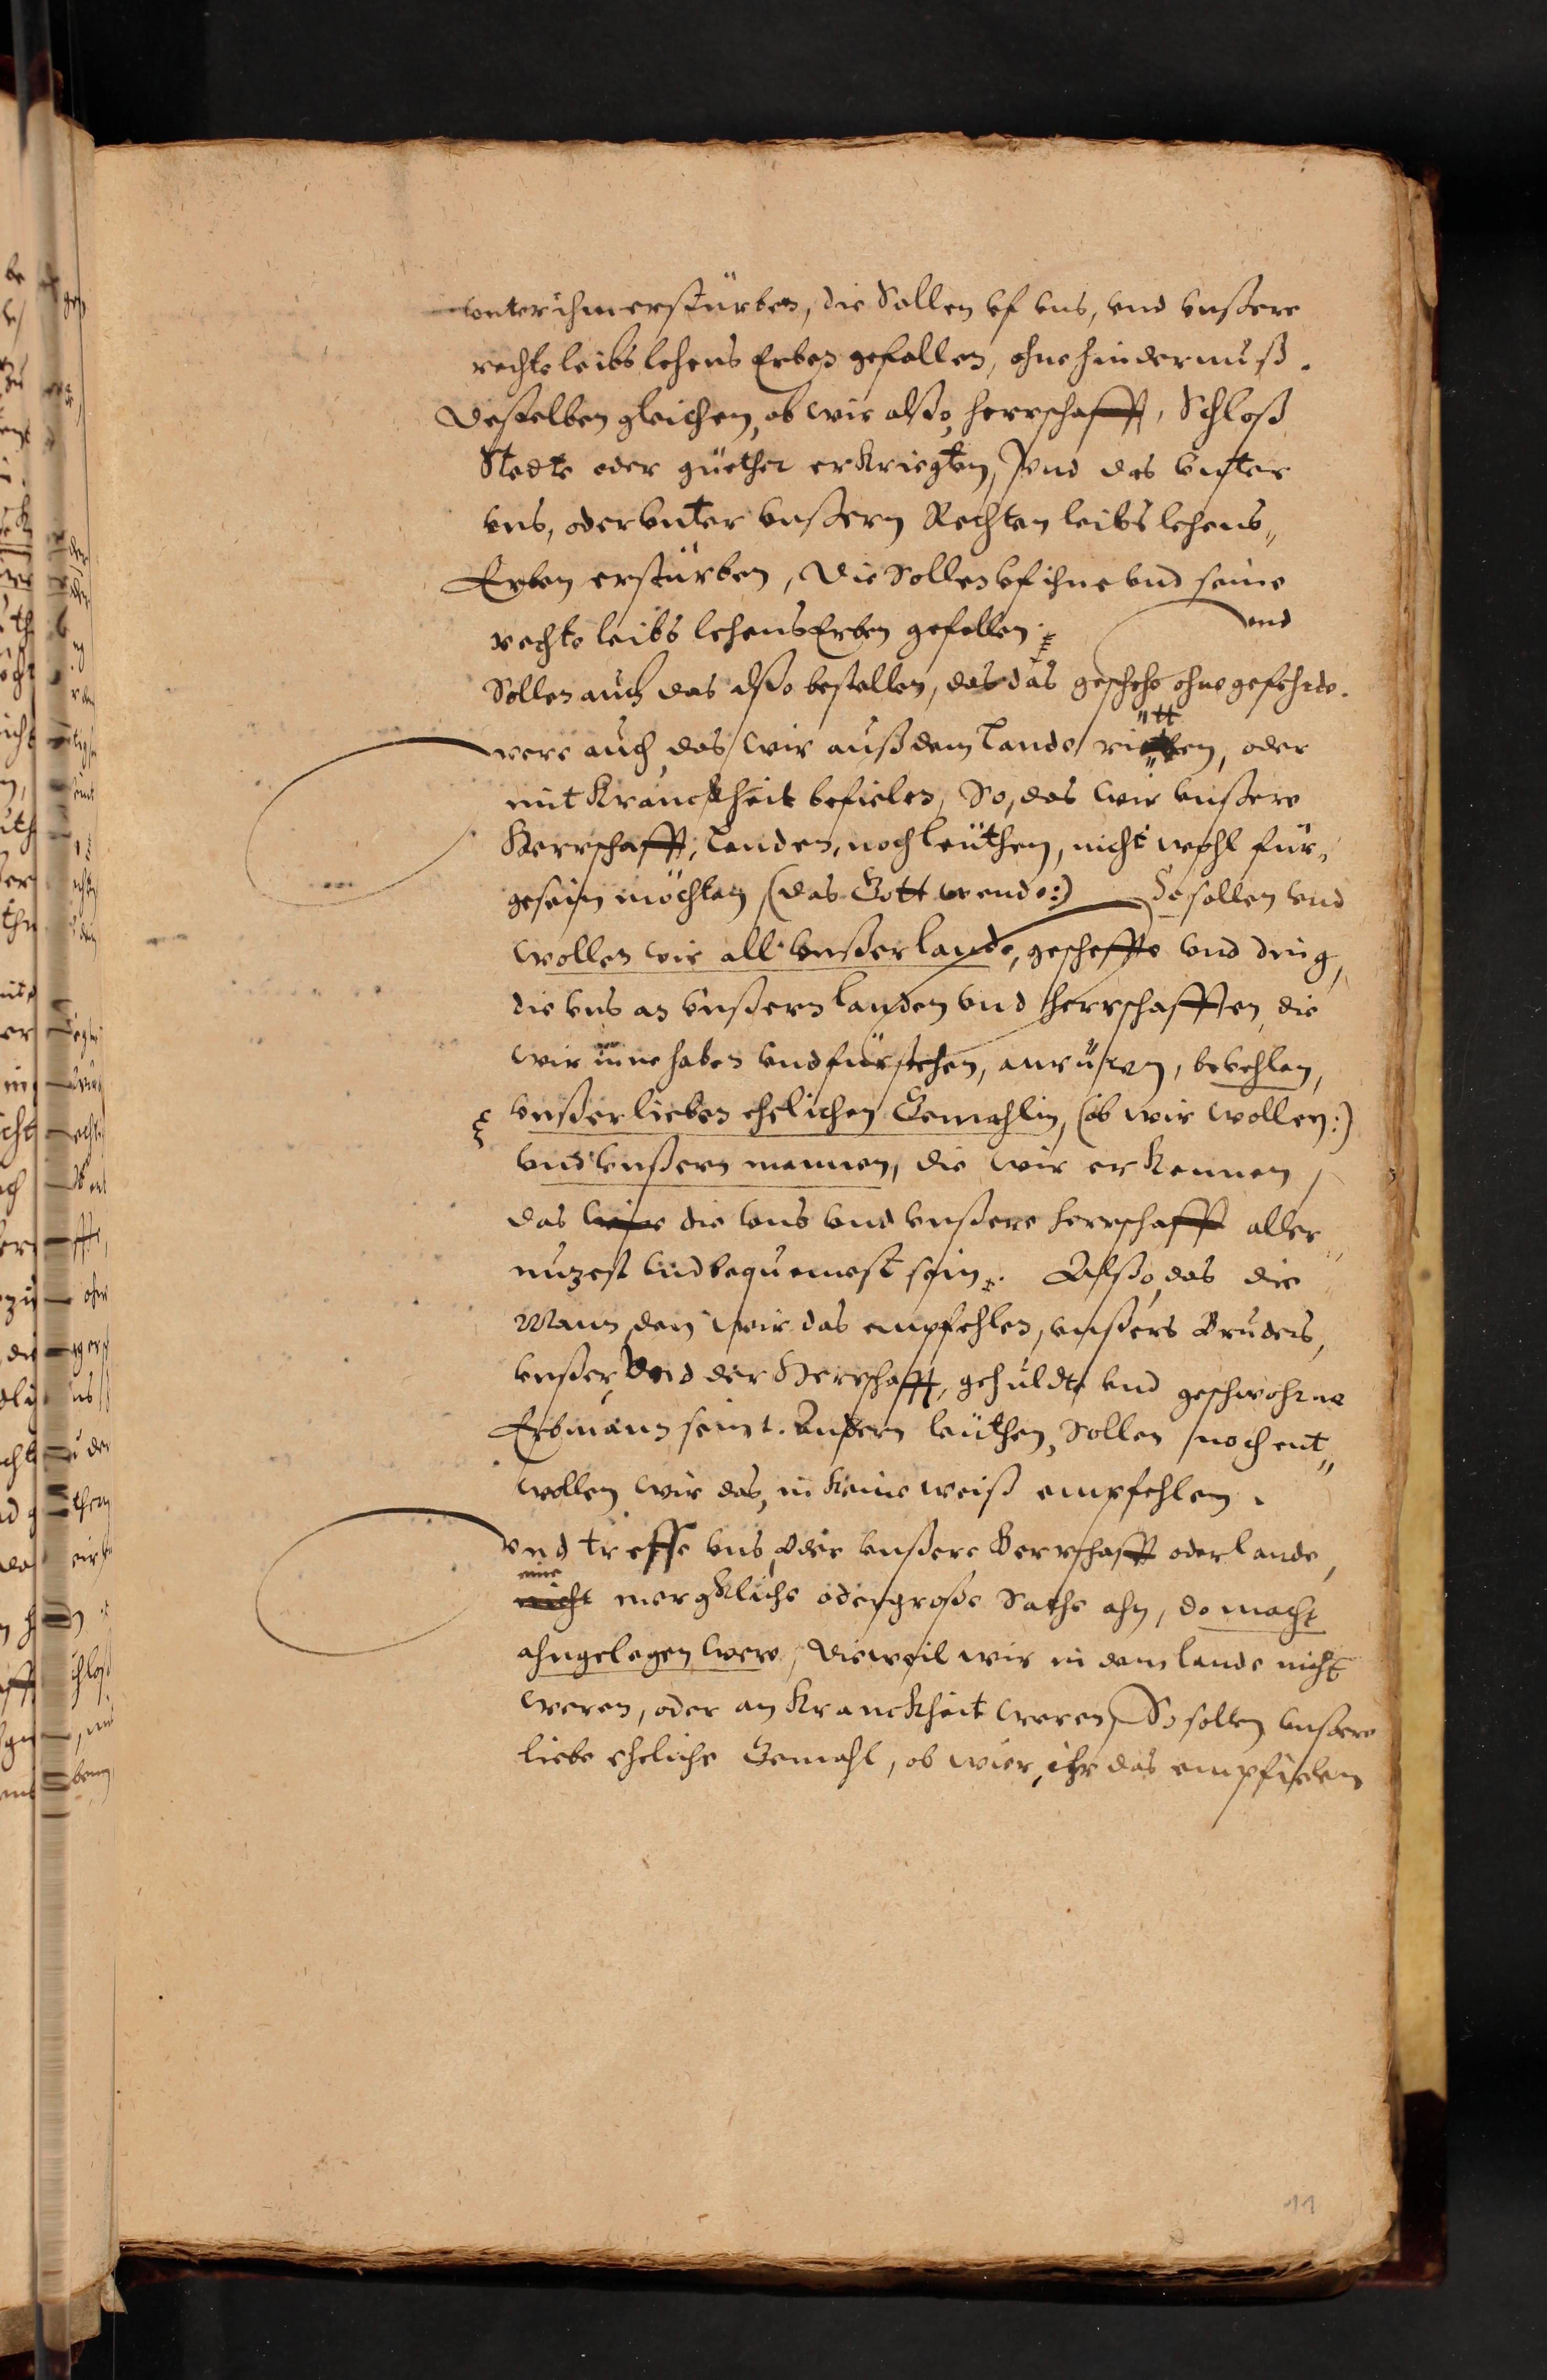 vnter ihm erstürben, die Sollen vf vns, vnd vnßere
rechte leibs lehens Erben gefallen, ohne hindernuß.
Desselben gleichen, ob wir alßo, herrschafft, Schloß
Stedte oder güether erkriegten, vnd das vnter
vns, oder vnter vnßern Rechten leibs lehens„
Erben erstürben, Die Sollen vf ihne vnd seine
rechte leibs lehens Erben gefallen. vnd
Sollen auch das alßo bestellen, das das geschehe ohne gefehrde.
were auch, das wir auß dem Lande ritten, oder
mit Kranckheit befielen, So, das wir vnßere
Herrschafft, Landen, noch leüthen, nicht wohl für„
gesein möchten (das Gott wende:) So sollen vnd
wollen wir all vnßer lande, gescheffte vnd ding,
die vns an vnßern landen vnd herrschafften, die
wir inne haben vnd fürstehen, anrüren, bevehlen,
vnßer lieben ehelichen Gemahlin, (ob wir wollen:)
vnd vnßern mannen, die wir erkennen
das die vns vnd vnßere herrschafft aller„
nuzest vnd bequemest sein. Alßo, das die
Mann, den wir das empfehlen, vnßers Bruders,
vnßer, Vnd der Herrschafft, gehuldte vnd geschwohrne
Erbmann seint. Andern leüthen, Sollen noch ent„
wollen wir das, in keine weiß empfehlen.
Vnd treffe vns, oder vnßere Herrschafft oder lande,
eine
nicht mergkliche oder große Sache ahn, do macht
ahngelegen were, Dieweil wir in dem lande nicht
weren, oder an Kranckheit weren, So sollen vnßere
liebe eheliche Gemahl, ob wier, ihr das empfielen
11